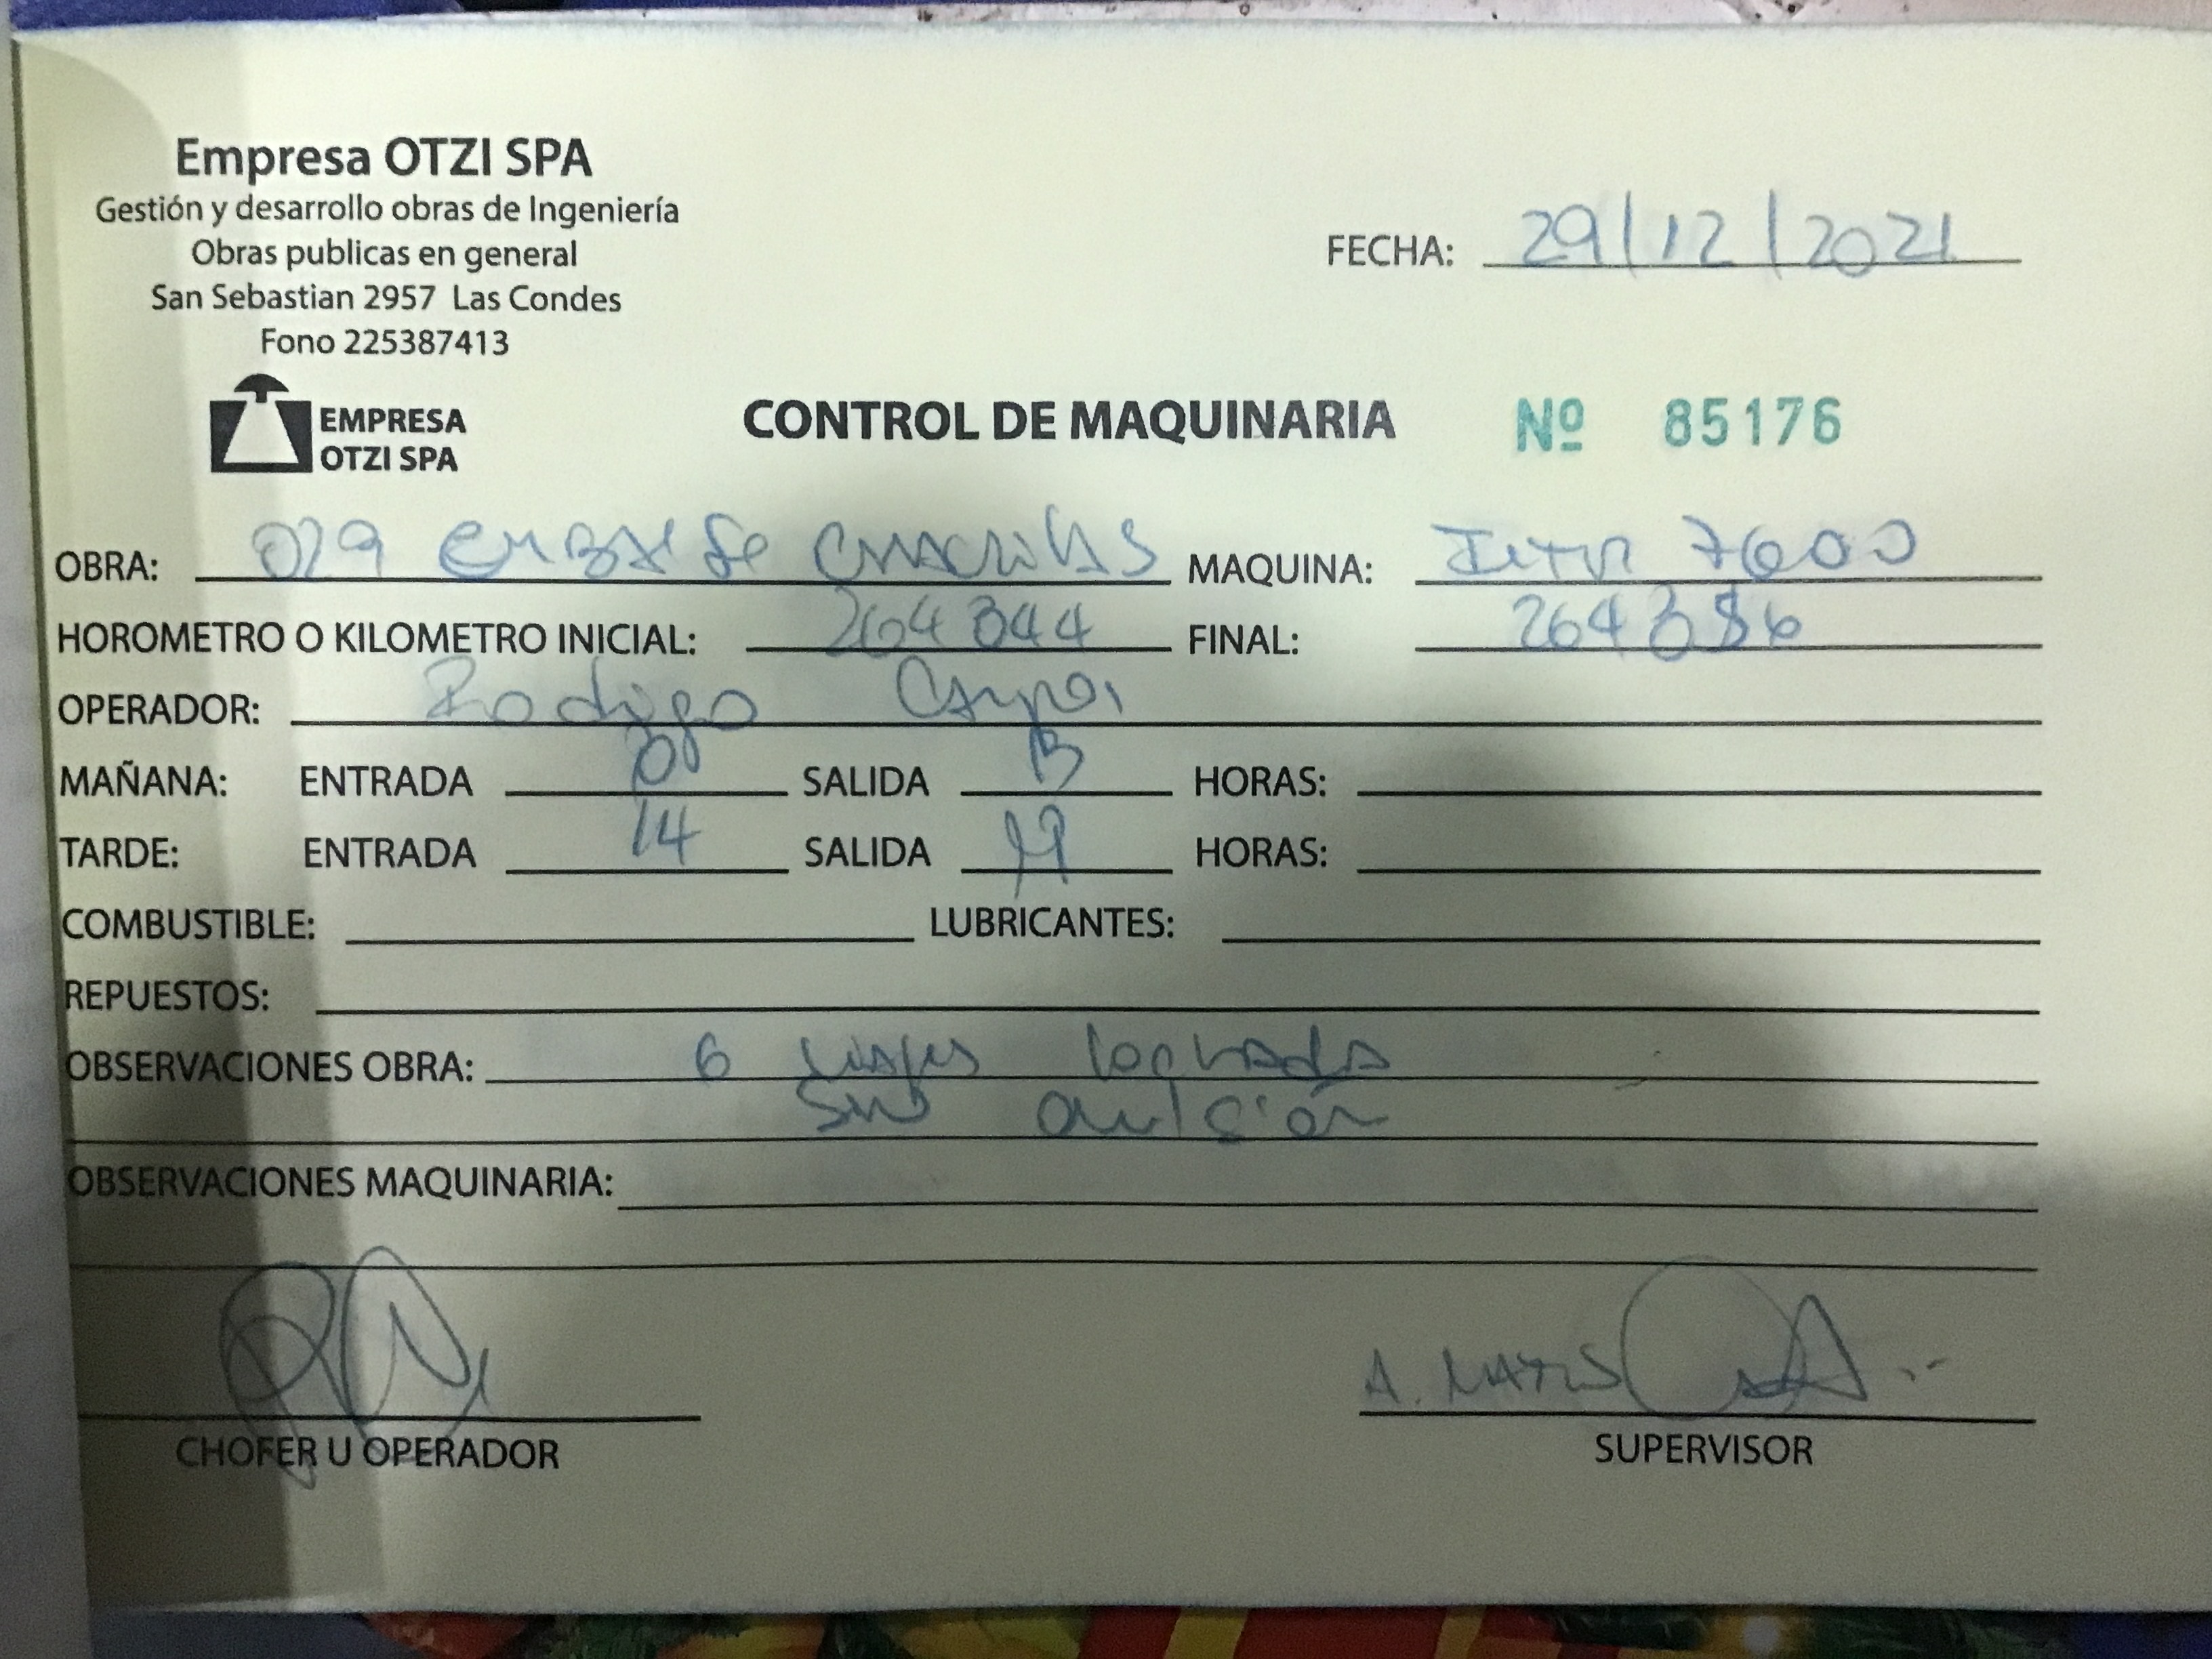 Empresa OTZI SPA
Gestión y desarrollo obras de Ingeniería
Obras publicas en general
San Sebastian 2957 Las Condes
Fono 225387413
FECHA: 29/12/2021
EMPRESA
OTZI SPA
CONTROL DE MAQUINARIA Nº 85176
OBRA: MAQUINA: 7600
HOROMETRO O KILOMETRO INICIAL: 264344 FINAL: 264386
OPERADOR: Rodrigo Campos
MAÑANA: ENTRADA 08 SALIDA 13 HORAS:
TARDE: ENTRADA 14 SALIDA HORAS:
COMBUSTIBLE: LUBRICANTES:
REPUESTOS:
OBSERVACIONES OBRA: 6
OBSERVACIONES MAQUINARIA:
CHOFER U OPERADOR
A.
SUPERVISOR